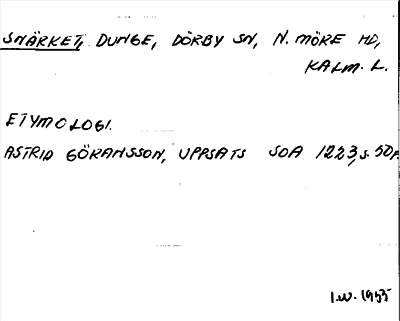 SNÄRKET, DUNGE, DÖRBY SN, N. MÖRE HD,
KALM. L.
ETYMOLOGI.
ASTRID GÖRANSSON, UPPSATS SOA 1223, S. 50F.
I.W. 1955